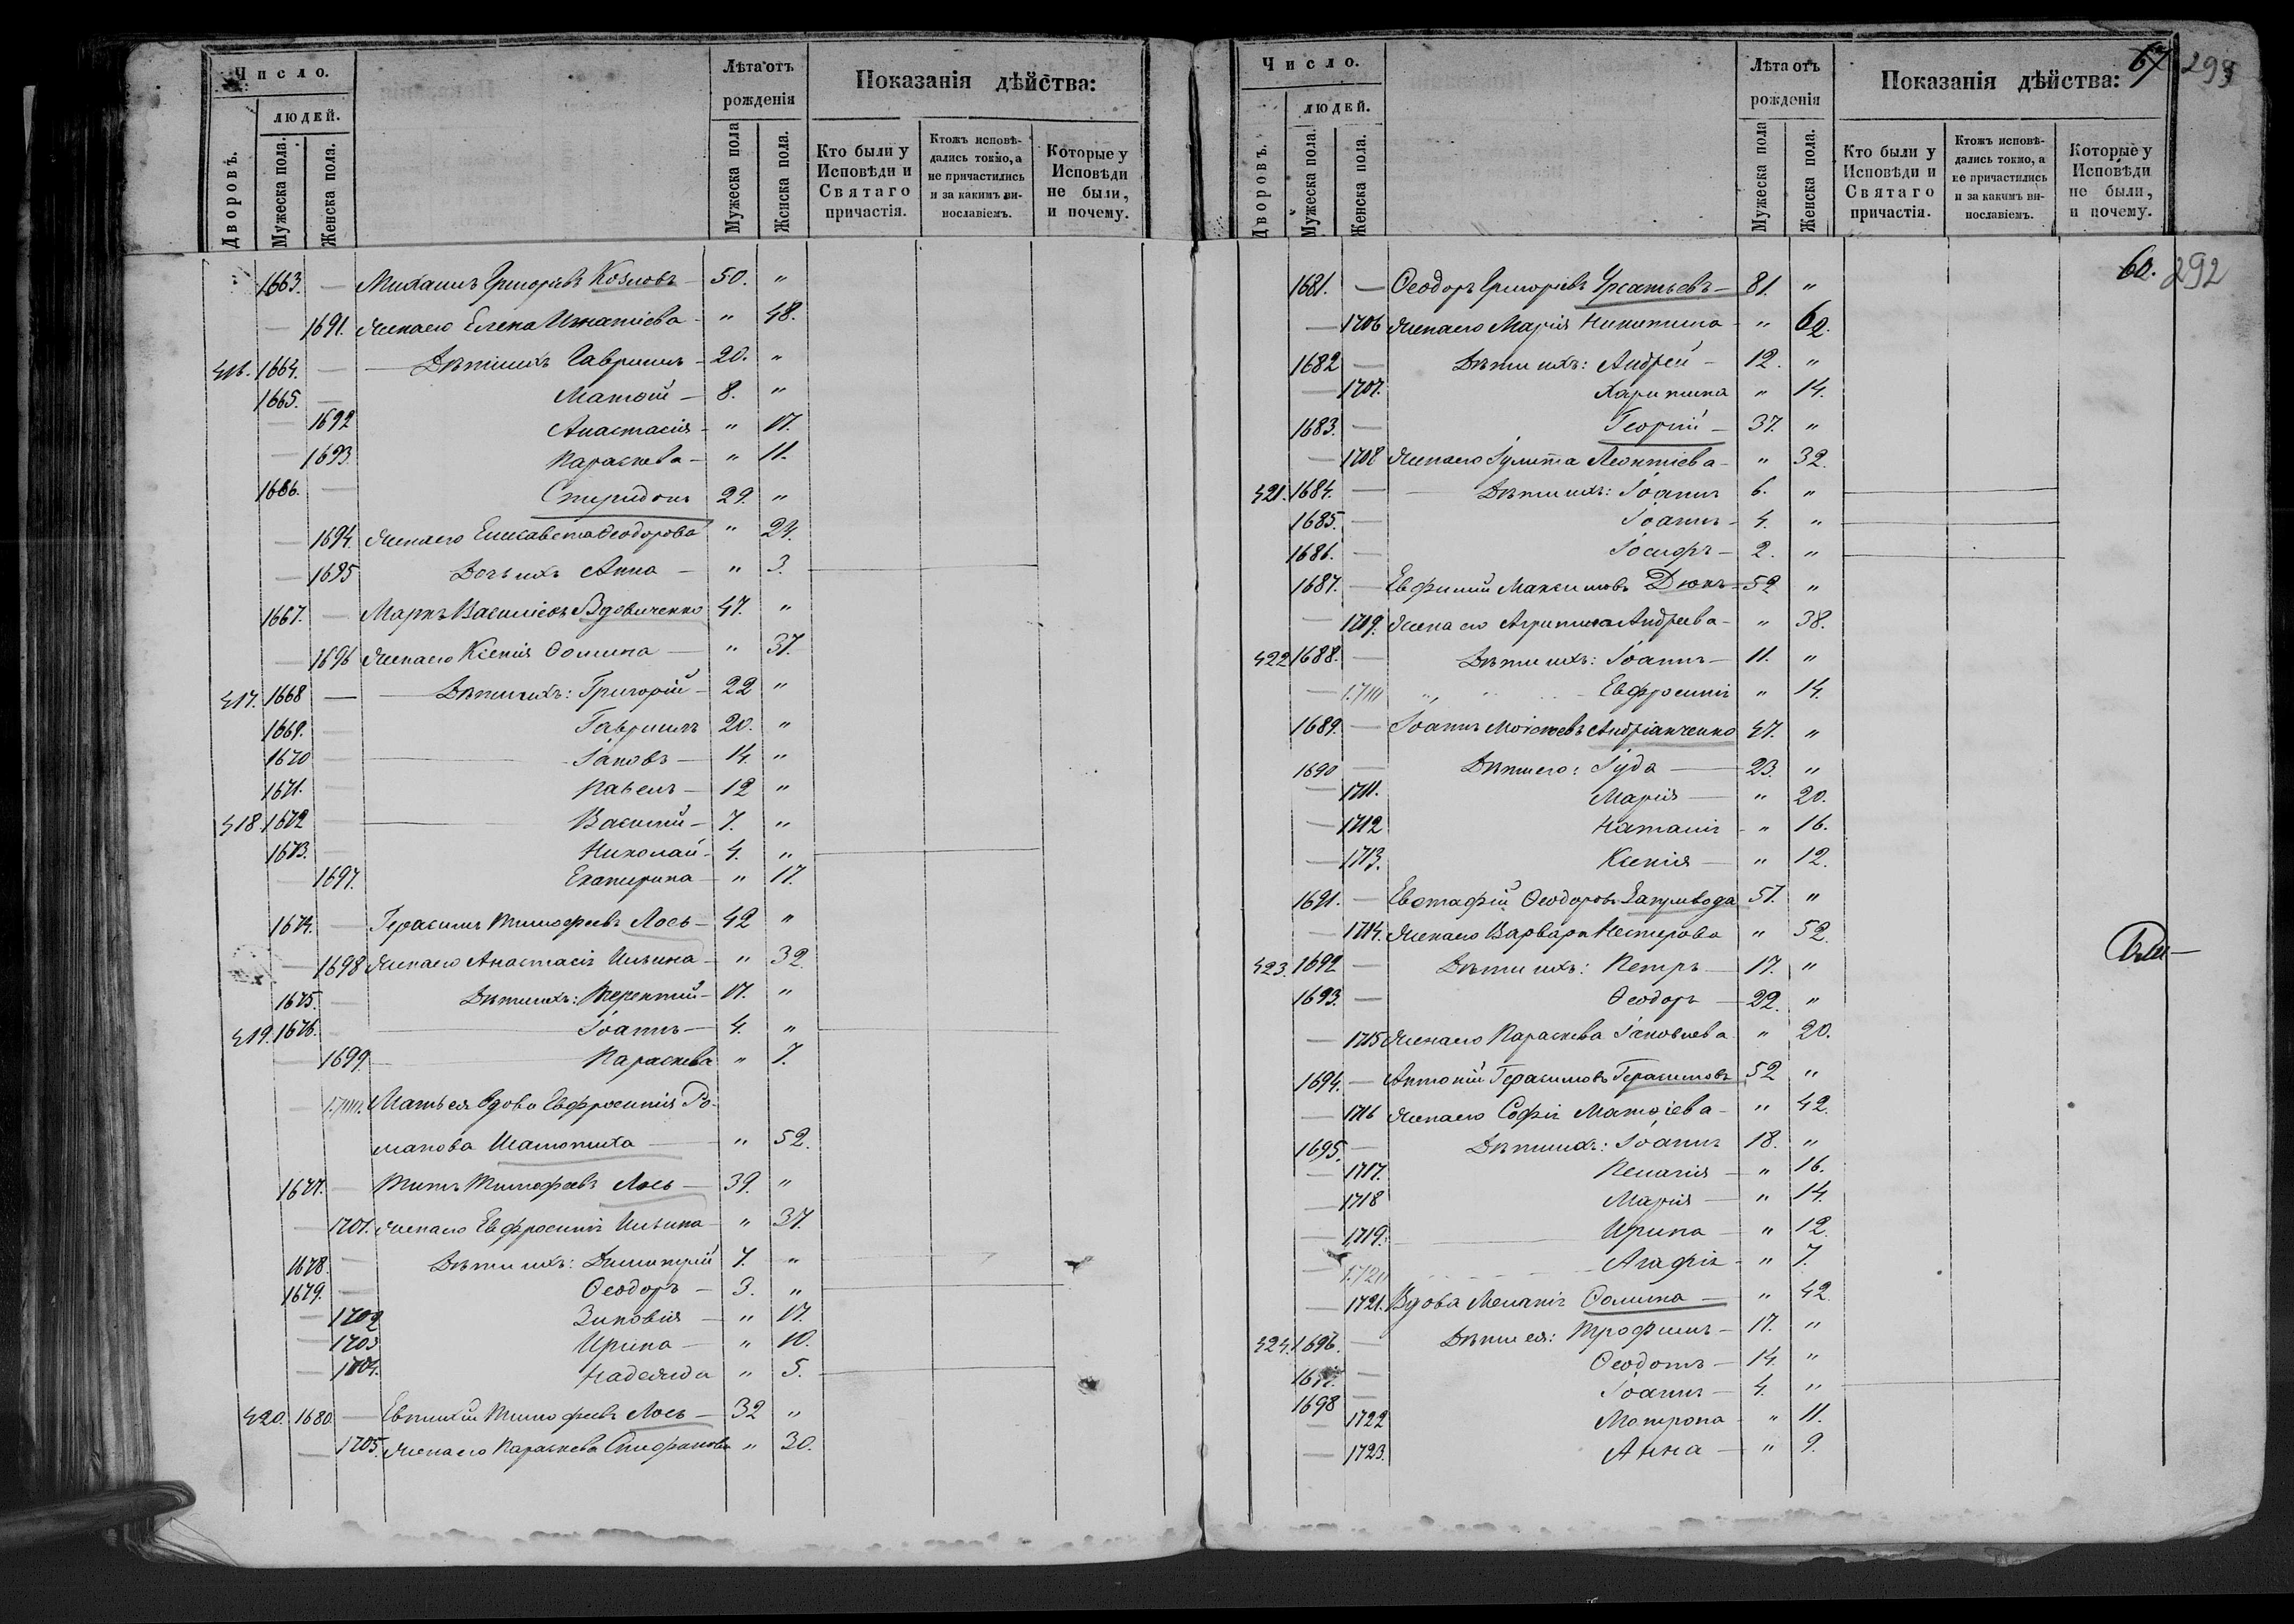 Число.
людей.
Дворовъ.
Мужеска пола.
Женска пола.
Лѣта отъ
рожденія
Мужеска пола
Женска пола.
Показанія дѣйства:
Кто были у
Исповѣди и
Святаго
причастія.
Ктожъ исповѣ-
дались токмо, а
не причастились
и за какимъ ви-
нословіемъ.
Которые у
Исповѣди
не были,
и почему.
" 1663. — Михаилъ Григорьевъ Козловъ — 50. "
— 1691. Жена его Елена Игнатіева — " 48.
416. 1664. — Дѣти ихъ Гавріилъ — 20. "
1665. — Матѳій — 8. "
— 1692 Анастасія — " 17.
— 1693. Параскева — " 11.
1666. — Спиридонъ 29. "
— 1694. Жена его Елисавета Ѳеодорова " 24.
— 1695 Дочь ихъ Анна — " 3.
1667. — Маркъ Василіевъ Вдовиченко 47. "
— 1696 Жена его Ксенія Ѳомина — " 37.
417. 1668 — Дѣти ихъ: Григорій — 22 "
1669. — Гавріилъ 20. "
1670 — Іаковъ — 14. "
1671. — Павелъ — 12 "
418 1672 — Василій — 7. "
1673. — Николай — 4. "
— 1697. Екатерина — " 17.
1674. — Герасимъ Тимофеевъ Лось — 42 "
— 1698 Жена его Анастасія Ильина — " 32
1675. — Дѣти ихъ: Терентій — 17. "
419. 1676. — Іоаннъ — 4. "
— 1699. Параскева " 7.
— 1700. Мать ея вдова Евфросинія Ро-
манова " 52.
1677. — Титъ Тимофеевъ Лось — 39. "
— 1701. Жена его Евфросинія Ильина — " 37.
1678. — Дѣти ихъ: Димитрій 7. "
1679. — Ѳеодоръ — 3. "
— 1702 Зиновія — " 17.
— 1703 Ирина — " 10.
— 1704. Надежда " 5.
420. 1680. — Евтихій Тимофеевъ Лось — 32 "
— 1705. Жена его Параскева Стефанова " 30.
Число.
людей.
Дворовъ.
Мужеска пола.
Женска пола.
Лѣта отъ
рожденія
Мужеска пола
Женска пола.
Показанія дѣйства:
67 293
Кто были у
Исповѣди и
Святаго
причастія.
Ктожъ исповѣ-
дались токмо, а
не причастились
и за какимъ ви-
нословіемъ.
Которые у
Исповѣди
не были,
и почему.
60. 292
1681. — Ѳеодоръ Григоріевъ 81. "
— 1706 Жена его Марія Никитина — " 62.
1682 — Дѣти ихъ: Андрей — 12. "
— 1707. Харитина " 14.
1683. — Георгій — 37. "
— 1708 Жена его Іулитта Леонтіева — " 32.
421. 1684. — Дѣти ихъ: Іоаннъ 6. "
1685. — Іоаннъ — 4. "
1686. — Іосифъ — 2. "
1687. — Евфимій Максимовъ Дюкъ — 52 "
— 1709. Жена его Агрипина Андреева — " 38.
422 1688. — Дѣти ихъ: Іоаннъ — 11. "
— 1710 Евфросинія " 14.
1689. — Іоаннъ Моісеевъ Андріанченко 47. "
1690 — Дѣти его: Іуда — 23. "
— 1711. Марія — " 20.
— 1712 Наталія — " 16.
— 1713. Ксенія — " 12.
1691. — Евстафій Ѳеодоровъ Запривода 57. "
— 1714. Жена его Варвара Нестерова " 52.
423. 1692 — Дѣти ихъ: Петръ — 17. "
1693. — Ѳеодоръ — 22. "
— 1715 Жена его Параскева Іаковлева " 20.
1694. — Антоній Герасимовъ Герасимовъ 52 "
— 1716 Жена его Софія Матѳіева — " 42.
1695. — Дѣти ихъ: Іоаннъ 18. "
— 1717. Пелагія — " 16.
— 1718 Марія — " 14.
— 1719. Ирина — " 12.
— 1720 Агафія — " 7.
— 1721. Вдова Меланія Ѳомина — " 42
424. 1696. — Дѣти ея: Трофимъ — 17. "
1697. — Ѳеодотъ — 14. "
1698 — Іоаннъ — 4. "
— 1722 Матрона — " 11.
— 1723. Анна — " 9.